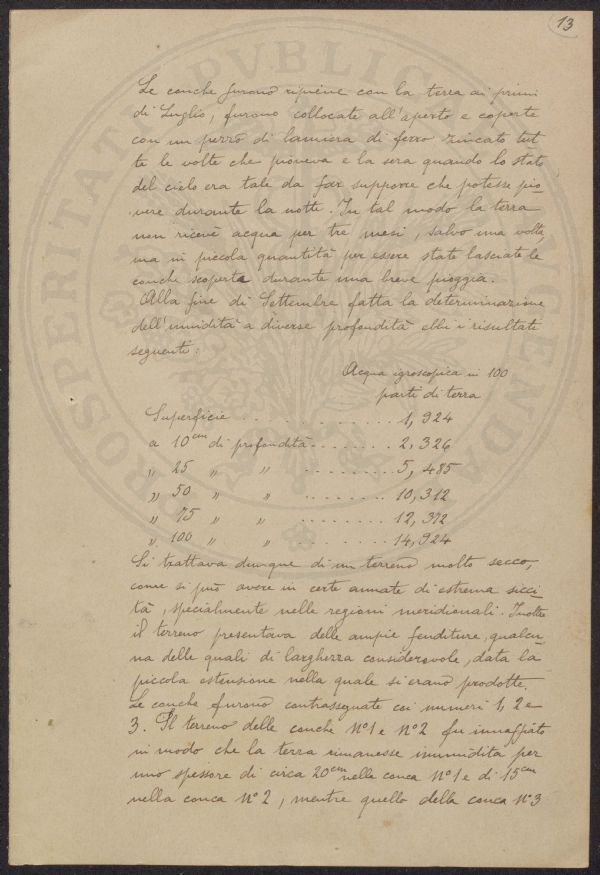 13
Le conche furono ripiene con la terra ai primi
di Luglio, furono collocate all'aperto e coperte
con un pezzo di lamiera di ferro zincato tut
te le volte che pioveva e la sera quando lo stato
del cielo era tale da far supporre che potesse pio-
vere durante la notte. In tal modo la terra
non ricevè acqua per tre mesi, salvo una volta,
ma in piccola quantità per essere state lasciate le
conche scoperta durante una breve pioggia.
Alla fine di Settembre fatta la determinazione
dell'umidità a diverse profondità ebbi i risultati
seguenti:
Acqua igroscopica in 100
parti di terra
Superficie . . . . . . . . . . . . 1,924
a 10cm di profondità . . . . . . . 2,326
" 25 " " . . . . . . . . 5,485
" 50 " " . . . . . . . . 10,312
" 75 " " . . . . . . . . 12,372
" 100 " " . . . . . . . . 14,924
Si trattava dunque di un terreno molto secco,
come si può avere in certe annate di estrema sicci-
tà, specialmente nelle regioni meridionali. Inoltre
il terreno presentava delle ampie fenditure, qualcu-
na delle quali di larghezza considerevole, data la
piccola estensione nella quale si erano prodotte.
Le conche furono contrassegnate coi numeri 1, 2 e
3. Il terreno delle conche No1 e No2 fu innaffiato
in modo che la terra rimanesse inumidita per
uno spessore di circa 20cm nella conca No1 e di 15cm
nella conca No 2, mentre quello della conca No3
PROSPERITATI PVBLICAE AVGENDAE